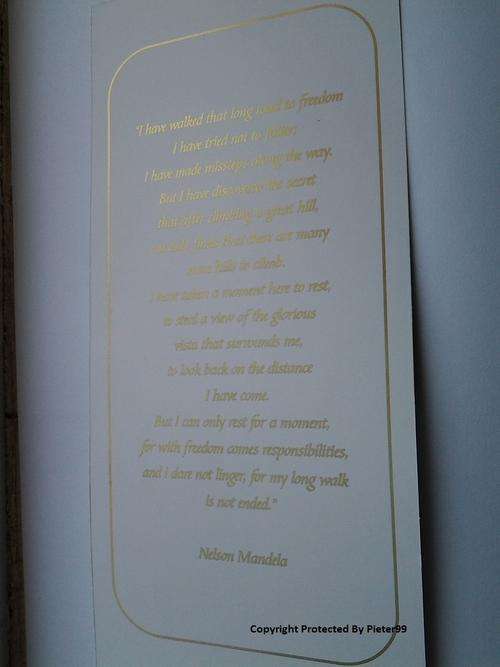 "I have walked that long road to freedom
I have tried not to falter;
I have made missteps along the way.
But I have discovered the secret
that after climbing a great hill,
one only finds that there are many
more hills to climb.
I have taken a moment here to rest,
to steal a view of the glorious
vista that surrounds me,
to look back on the distance
I have come.
But I can only rest for a moment,
for with freedom comes responsibilities,
and i dare not linger, for my long walk
is not ended."
Nelson Mandela
Copyright Protected By Pieter99